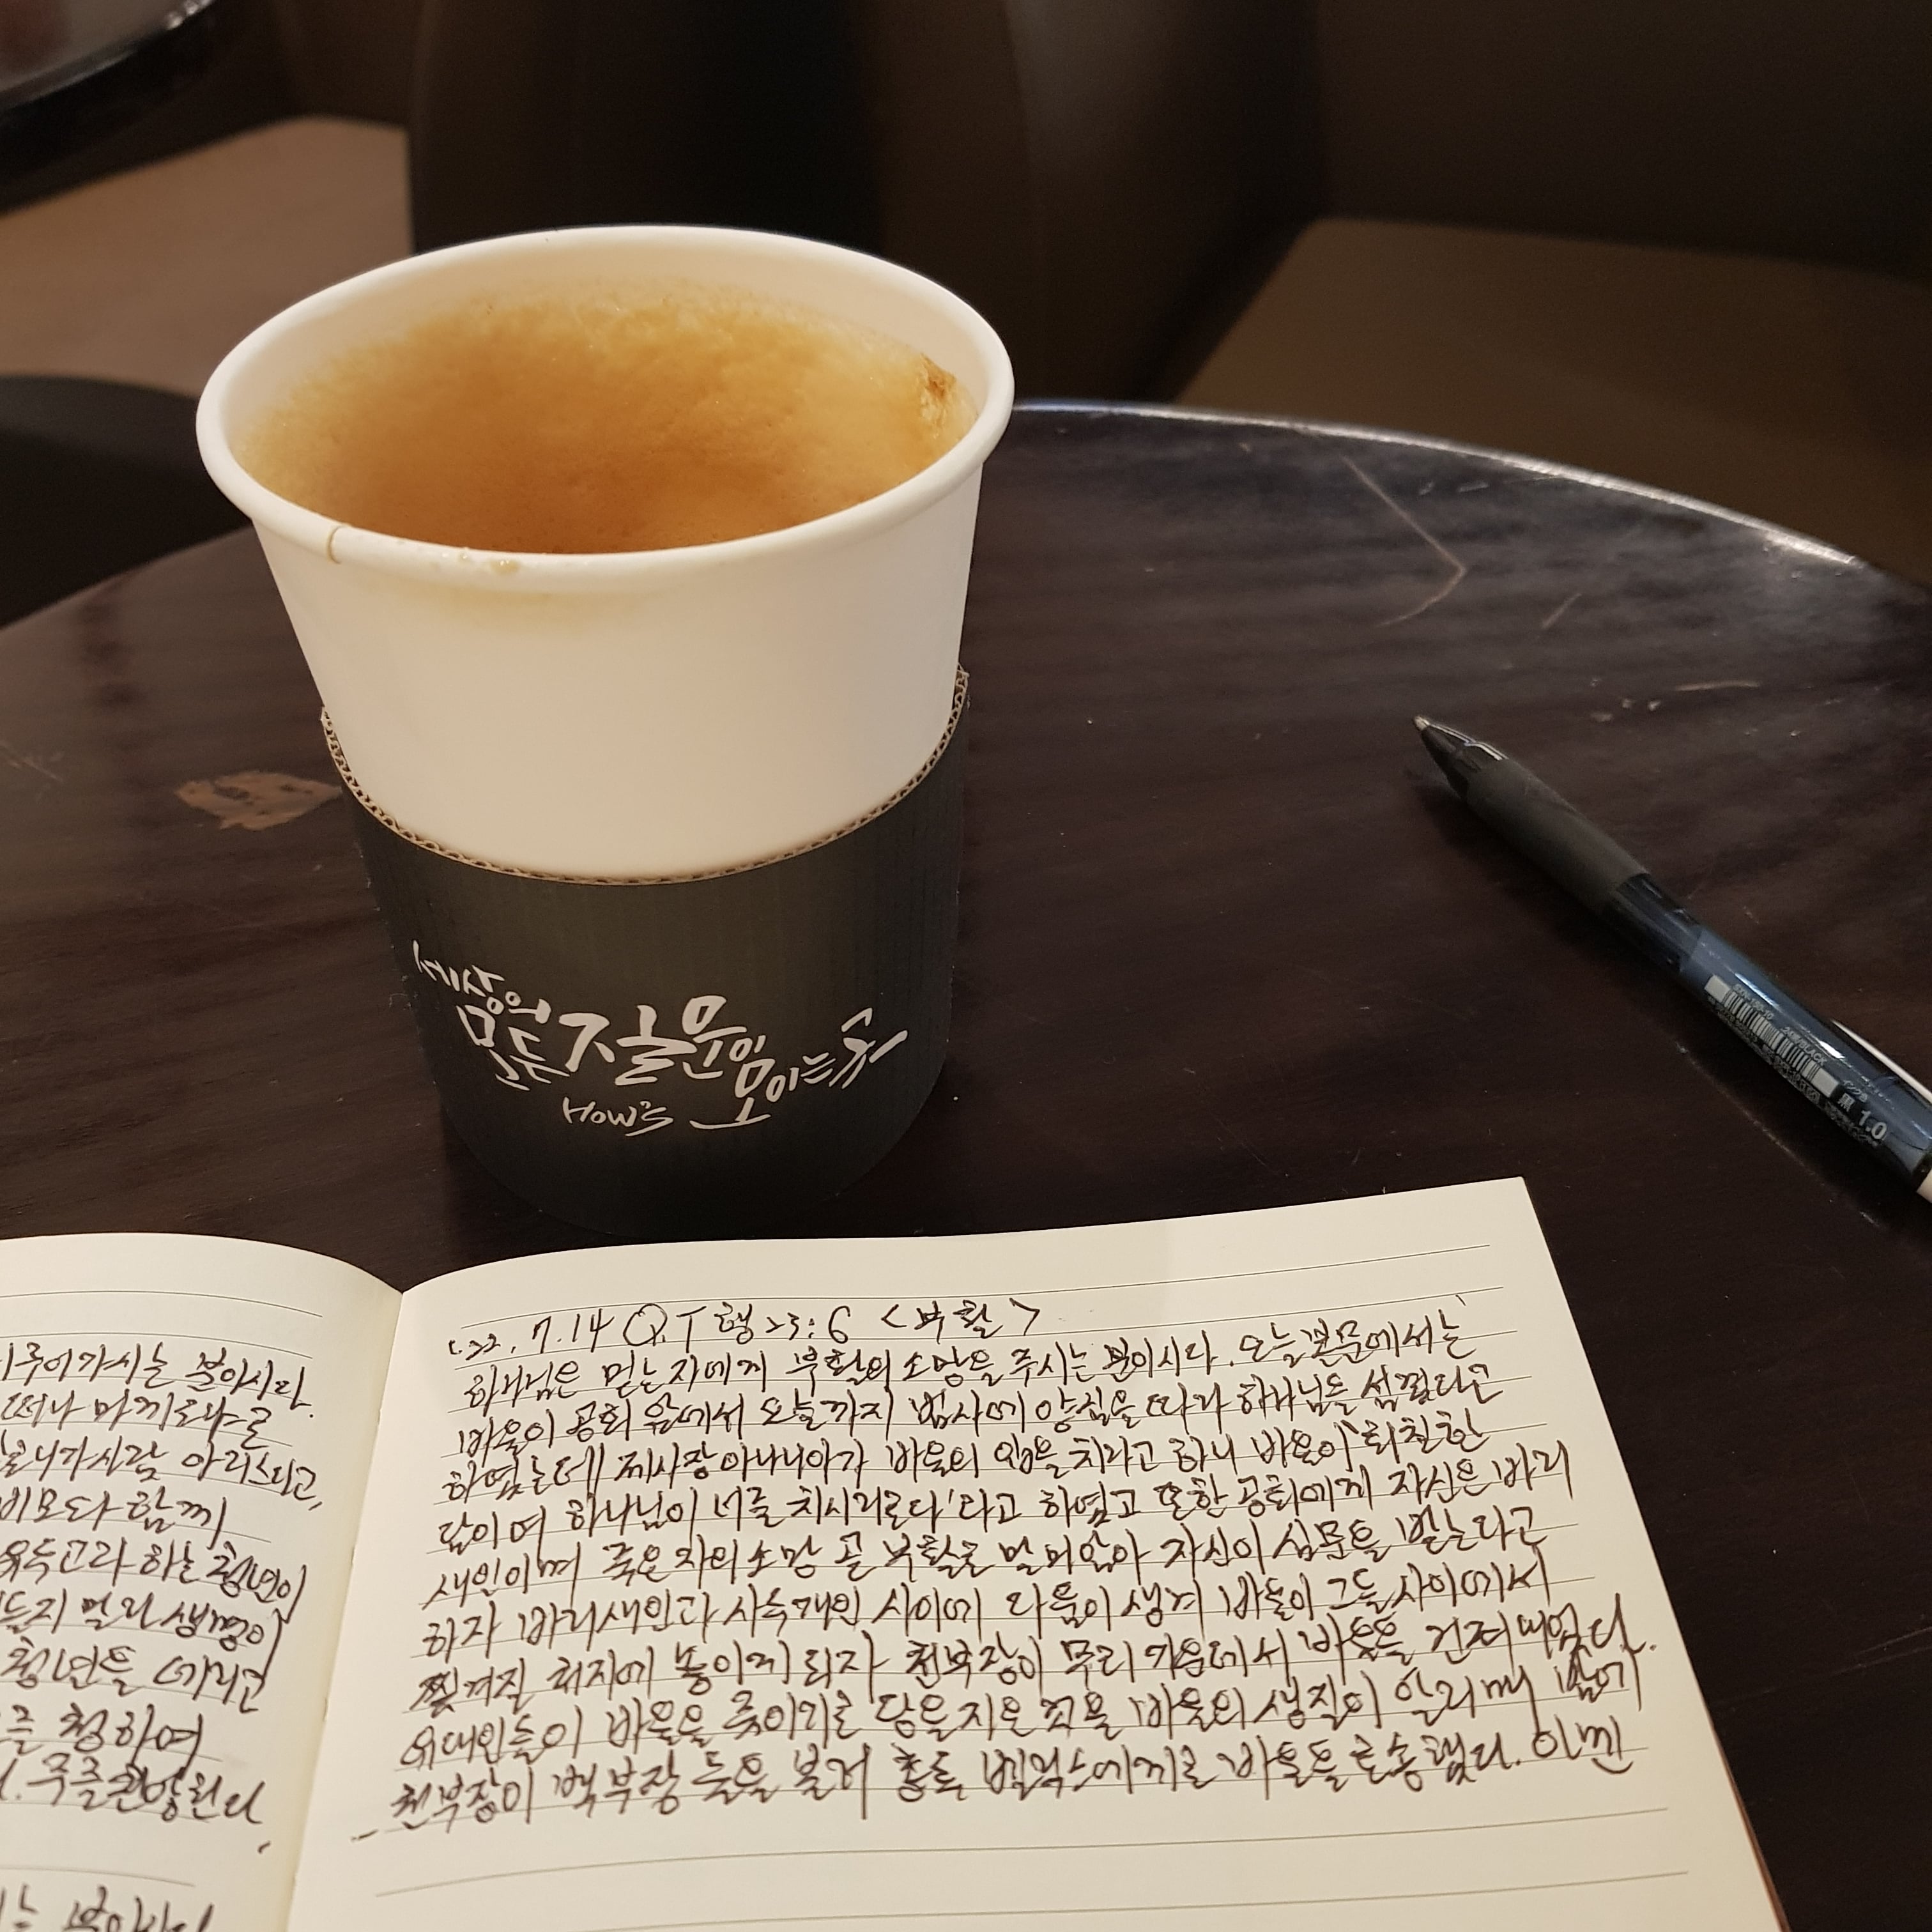 세상의
모든 질문이
모이는 곳
How's
BLACK
黒 1.0
루어가시는 분이시다.
떠나 마게도냐로
니가사람 아리스다고,
비모와 함께
유두고라 하는 청년이
멀리 생명이
청년을 데리고
청하여
주를 찬양한다
'22. 7.14 Q.T 행 23:6 <부활>
하나님은 믿는 자에게 부활의 소망을 주시는 분이시다. 오늘 본문에서는
바울이 공회 앞에서 오늘까지 범사에 양심을 따라 하나님을 섬겼다고
하였는데 제사장 아나니아가 바울의 입을 치라고 하니 바울이 '회칠한
담이여 하나님이 너를 치시리로다'라고 하였고 또한 공회에게 자신은 바리
새인이며 죽은 자의 소망 곧 부활로 말미암아 자신이 심문을 받는다고
하자 바리새인과 사두개인 사이에 다툼이 생겨 바울이 그들 사이에서
찢겨질 처지에 놓이게 되자 천부장이 무리 가운데서 바울을 건져내었다.
유대인들이 바울을 죽이기로 당을 지은 것을 바울의 생질이 알리매 밤에
천부장이 백부장 둘을 불러 총독 벨릭스에게로 바울을 호송했다. 이낀